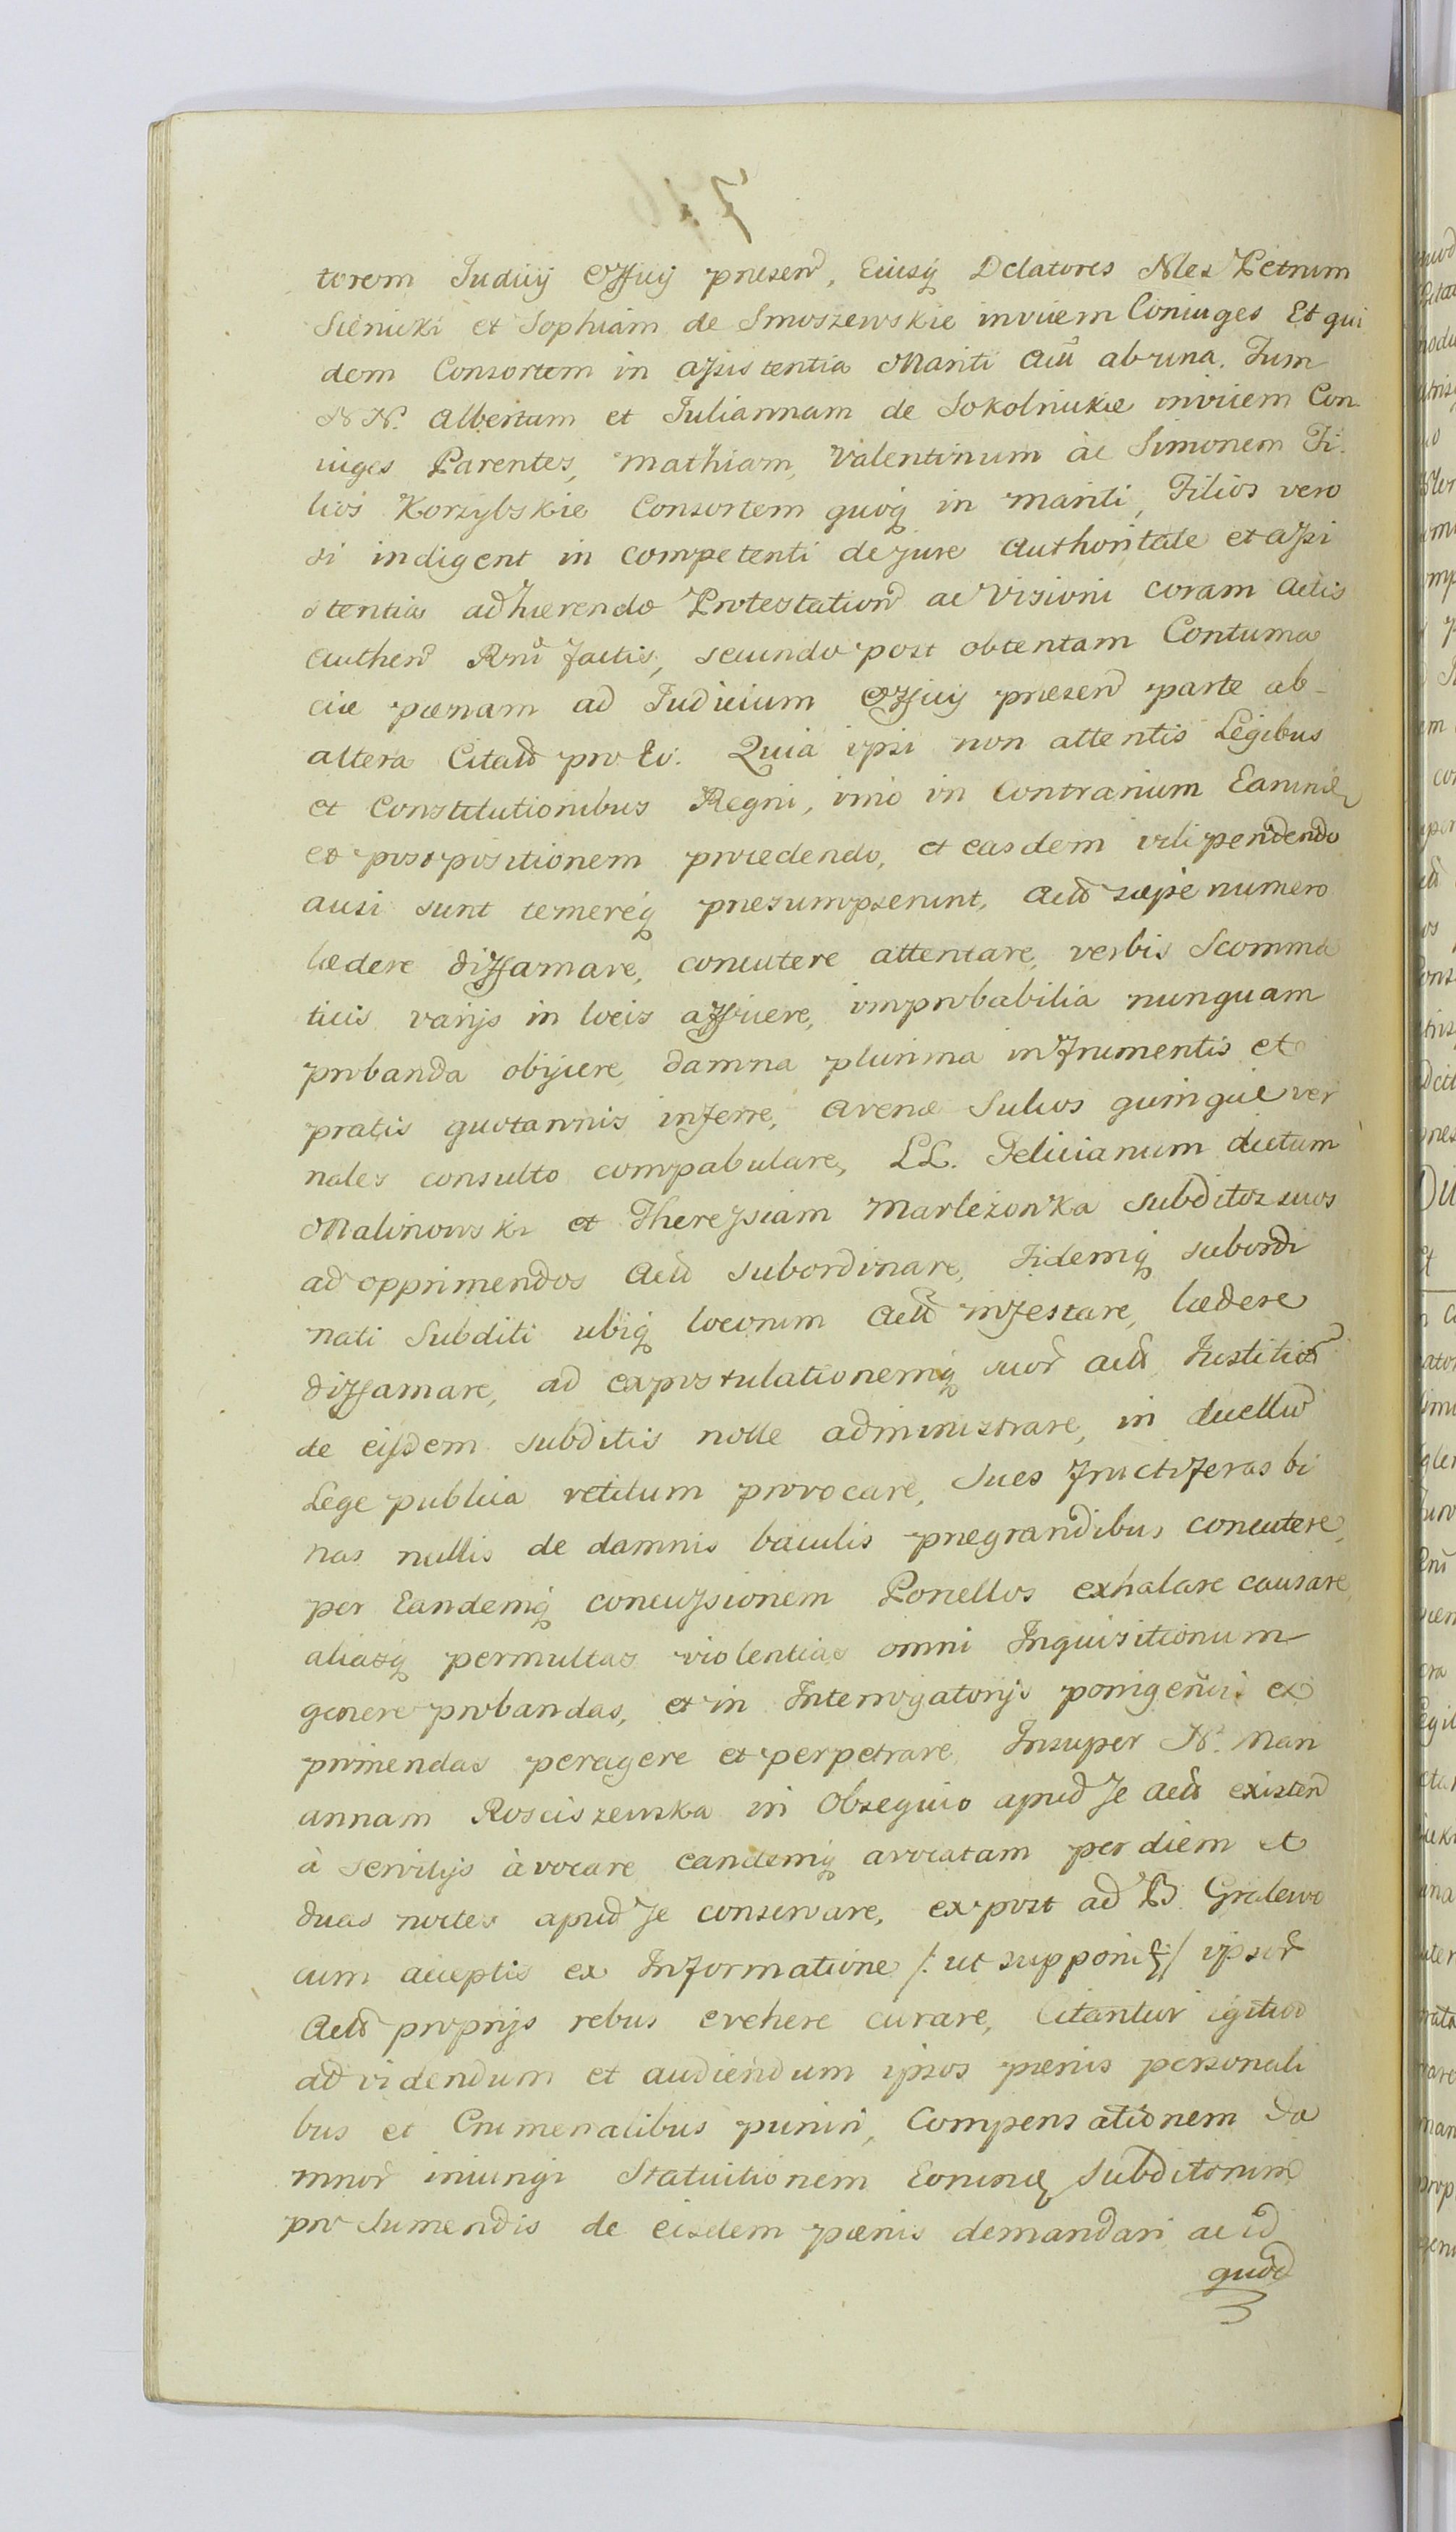 torem Judicij Officij præsen, Eiusq Delatores Nles Petrum
Sienicki et Sophiam de Smoszewskie invicem Coniuges Et qui
dem Consortem in assistentia Mariti Actū ab una. Tum
N N. Albertum et Juliannam de Sokolnickie invicem Con
iuges Parentes, Mathiam, Valentinum ac Simonem Fi
lios Korzybskie Consortem quoq in mariti, Filios vero
si indigent in competenti de jure Authoritate et assi
stentia adhærendo Protestation ac Visioni coram Actis
Authen Rnī factis, secundo post obtentam Contuma
ciæ pænam ad Judicium Officij præsen parte ab
altera Citatt pro Eo. Quia ipsi non attentis Legibus
et Constitutionibus Regni, imo in Contrarium Earund
et postpositionem procedendo, et easdem vilipendendo
ausi sunt temereq præsumpserunt, Actt sæpe numero
lædere diffamare, concutere attentare, verbis Scomma
ticis varijs in locis afficere, improbabilia nunquam
probanda obijcere damna plurima in frumentis et
pratis quotannis inferre, Avenæ Sulcos quinque ver
nales consulto compabulare, LL. Felicianum dictum
Malinowski et Thereysiam Marlezonka Subditos suos
ad opprimendos Actt subordinare, Iidemq subordi
nati Subditi ubiq locorum Actt infestare, lædere
diffamare, ad expostulationemq suor Actt Justitiam
de eisdem subditis nolle administrare, in duellum
Lege publica vetitum provocare, Sues fructiferas bi
nas nullis de damnis baculis prægrandibus concutere,
per Eandemq concussionem Porcellos exhalare causare
aliasq permultas violentias omni Inquisitionum
genere probandas, et in Interrogatorijs porrigen ex
primendas peragere et perpetrare Insuper N. Mari
annam Rosciszewska in Obsequio apud se Actt existen
à servitijs àvocare eandemq avocatam per diem et
duas noctes apud se conservare, ex post ad B. Gralewo
cum acceptis ex Informatione /: ut supponit :/ ipsor
Actt proprijs rebus evehere curare, Citantur igitur
ad videndum et audiendum ipsos pænis personali
bus et Crumenalibus puniri, Compensationem da
mnor iniungi Statuitionem Eorund Subditorum
pro Sumendis de eisdem pænis demandari ac id
quod